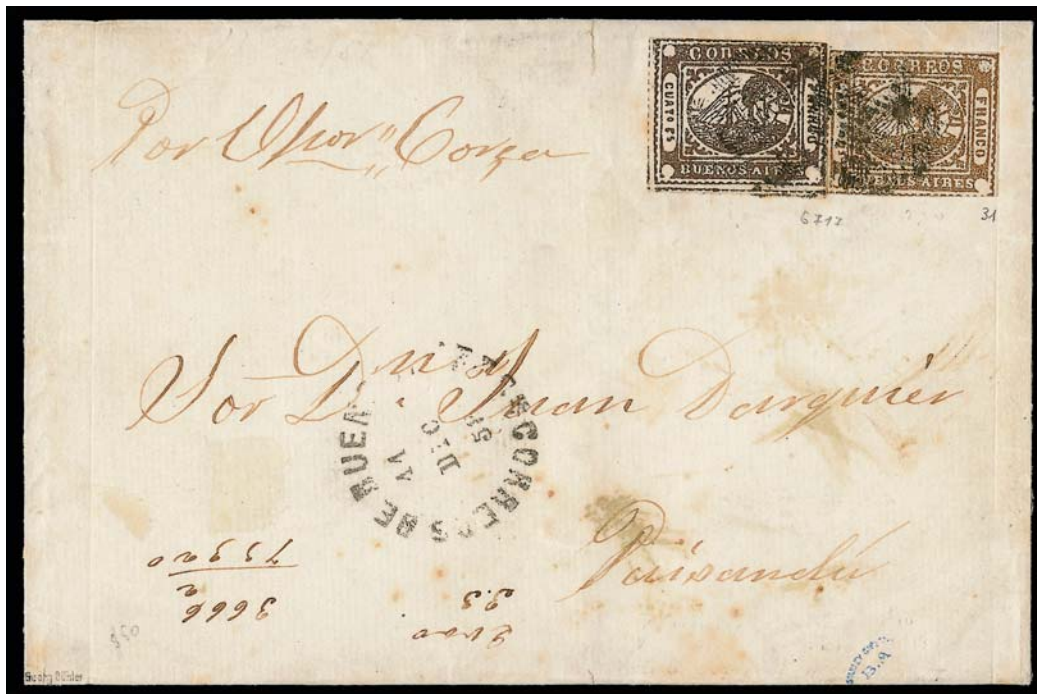 Por Vapor "Corza"
CORREOS
CUATO Ps
FRANCO
BUENOS AIRES
CORREOS
FRANCO
BUENOS AIRES
6717
31
Sor Dn Juan Darquier
CORREOS DE BUENOS
11
DEC
58
Paisandú
3666
2
850
Georg Bühler